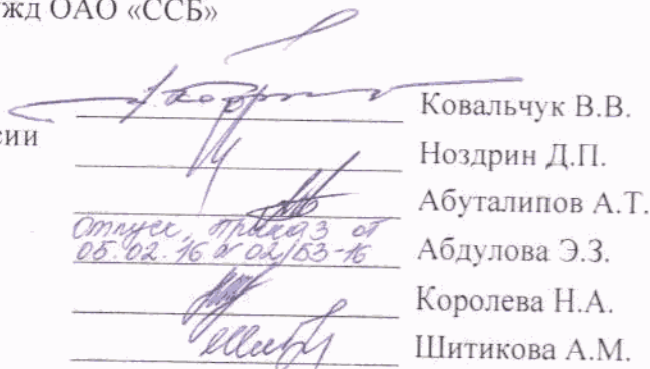 ужд ОАО «ССБ»
Ковальчук В.В.
сии
Ноздрин Д.П.
Абуталипов А.Т.
Отпуск, приказ от
05.02.16 № 02/53-16
Абдулова Э.З.
Королева Н.А.
Шитикова А.М.